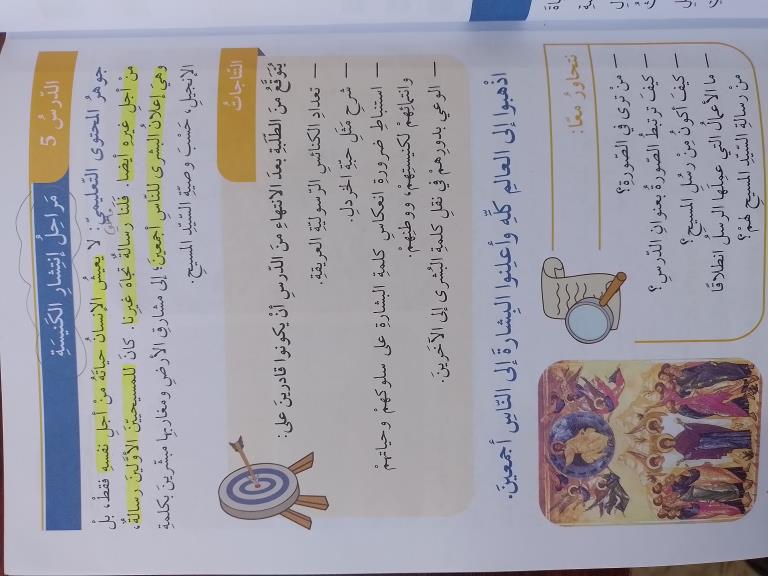 الدّرسُ 5
مَراحِلُ إنتِشارِ الكَنيسَةِ
جوهرُ المحتوى التّعليميّ: لا يعيشُ الإنسانُ حياتَهُ منْ أجلِ نفسِهِ فقطْ، بلْ
منْ أجلِ غيرِهِ أيضًا. فلنا رسالةٌ تجاهَ غيرِنا. كانَ للمسيحيّينَ الأوّلينَ رسالةٌ،
وهيَ إعلانُ البشرى للنّاسِ أجمعينَ؛ إلى مشارقِ الأرضِ ومغاربِها مبشّرينَ بكلمةِ
الإنجيلِ، حَسْبَ وصيّةِ السّيّدِ المسيحِ.
النّتاجاتُ
يُتوقّعُ منَ الطّلبةِ بعدَ الانتهاءِ منَ الدّرسِ أنْ يكونوا قادرينَ على:
– تعدادِ الكنائسِ الرّسوليّةِ العريقةِ.
– شرحِ مثَلِ حبّةِ الخردلِ.
– استنباطِ ضرورةِ انعكاسِ كلمةِ البشارةِ على سلوكِهمْ وحياتِهمْ
وانتمائِهمْ لكنيستِهمْ، ووطنِهمْ.
– الوعيِ بدورِهمْ في نقلِ كلمةِ البُشرى إلى الآخرينَ.
اذْهبُوا إلى العالمِ كلِّه وأعلِنوا البِشارةَ إلى النّاسِ أجمعينَ.
نتحاورُ معًا:
– منْ ترى في الصّورةِ؟
– كيفَ ترتبطُ الصّورةُ بعنوانِ الدّرسِ؟
– كيفَ أكونُ مِنْ رُسلِ المسيحِ؟
– ما الأعمالُ التي عمِلَها الرّسلُ انطلاقًا
منْ رسالةِ السّيّدِ المسيحِ لهمْ؟